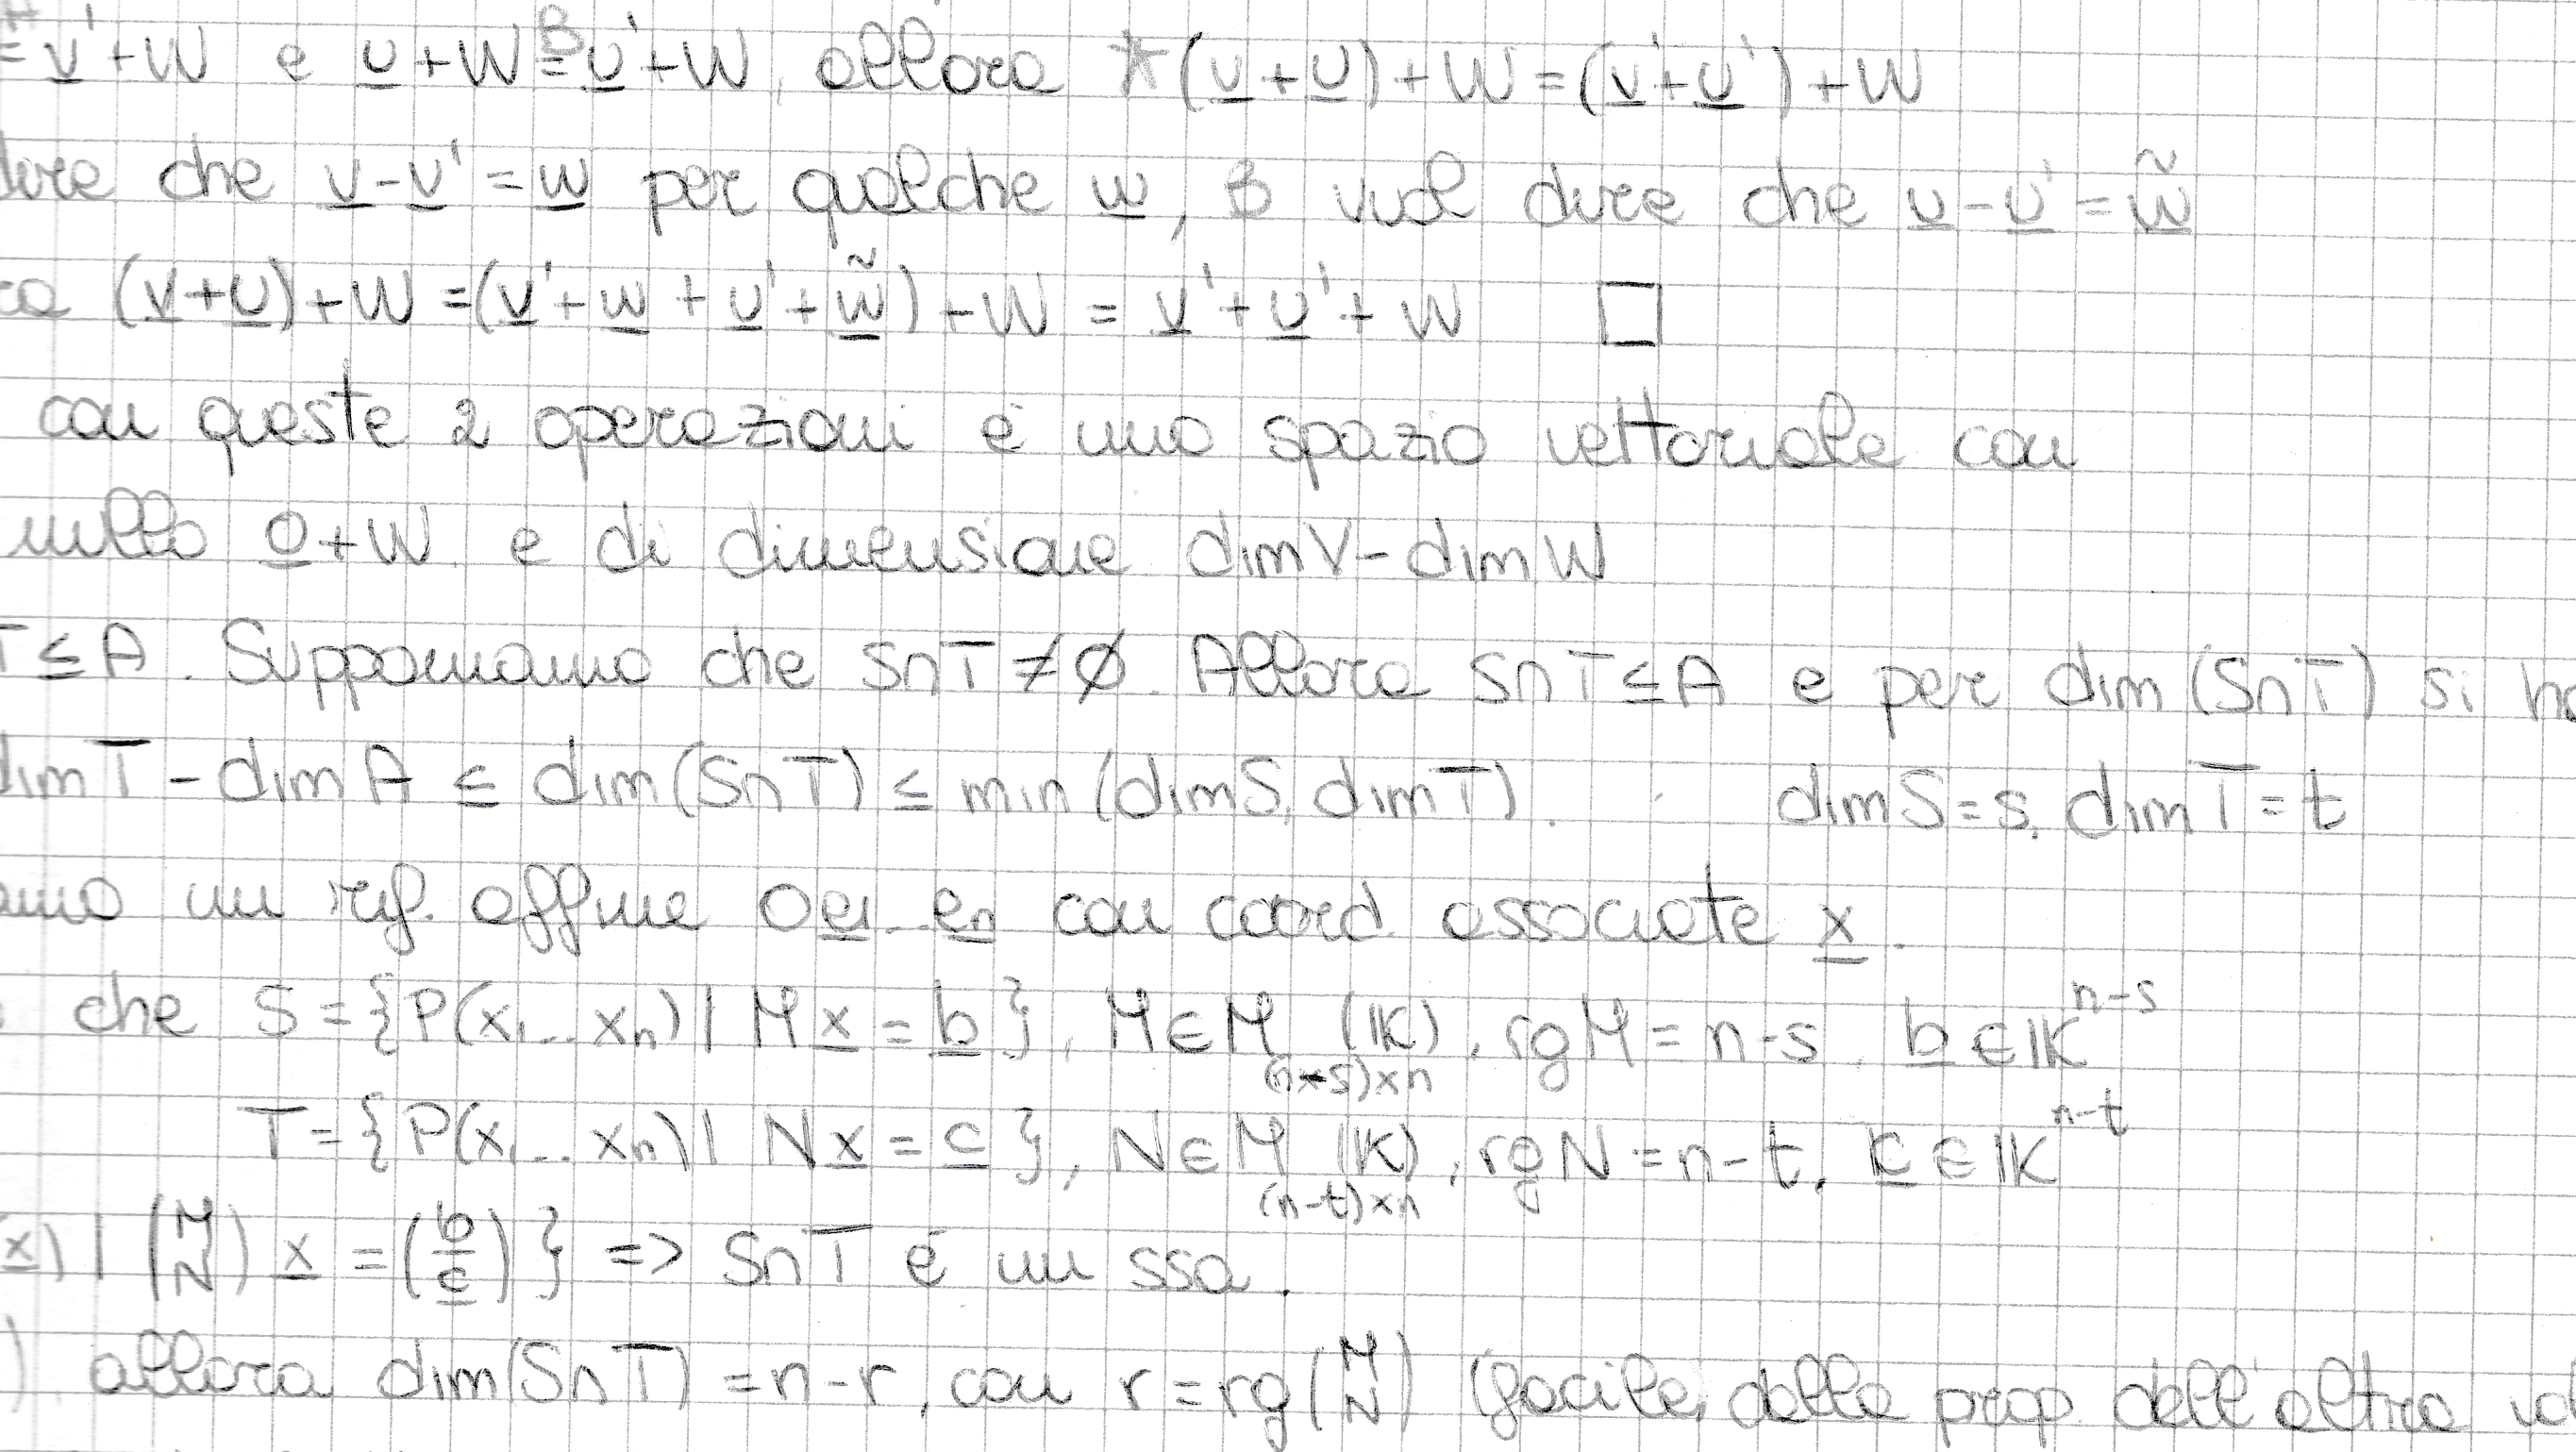 = v' + W e u + W = u' + W, allora * (v + u) + W = (v' + u') + W
dire che v - v' = w per qualche w, B vuol dire che u - u' = w̃
(v + u) + W = (v' + w + u' + w̃) + W = v' + u' + W □
con queste 2 operazioni è uno spazio vettoriale con
nullo 0 + W e di dimensione dim V - dim W
T ≤ A. Supponiamo che S∩T ≠ ∅. Allora S∩T ≤ A e per dim (S∩T) si ha
dim T - dim A ≤ dim (S∩T) ≤ min (dim S, dim T). dim S = s, dim T = t
un rif. affine O e1 .. en con coord associate x.
che S = {P(x1 .. xn) | M x = b}, M ∈ M(n-s)×n (K), rg M = n-s, b ∈ K^(n-s)
T = {P(x1 .. xn) | N x = c}, N ∈ M(n-t)×n (K), rg N = n-t, c ∈ K^(n-t)
x) | (M N) x = (b c)} => S∩T è un ssa.
) allora dim (S∩T) = n-r, con r = rg (M N) (facile, dalla prop dell'altra